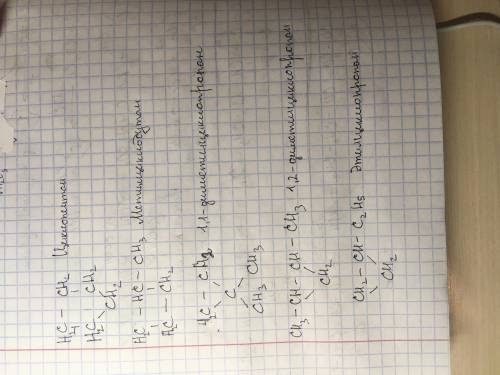 H₂C — CH₂ Циклопентан
H₂C CH₂
CH₂
H₂C — HC — CH₃ Метилциклобутан
H₂C — CH₂
H₂C — CH₂ 1,1-диметилциклопропан
C
CH₃ CH₃
CH₃ — CH — CH — CH₃ 1,2-диметилциклопропан
CH₂
CH₂ — CH — C₂H₅ Этилциклопропан
CH₂